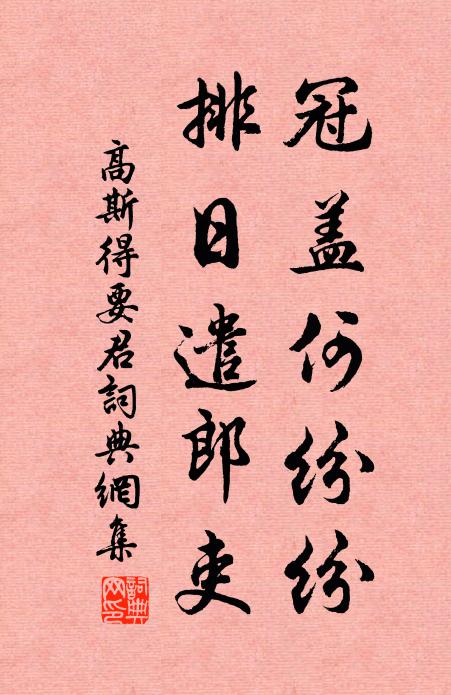 冠盖何纷纷
排日遣郎吏
高斯得要君詞典網集
詞典网印